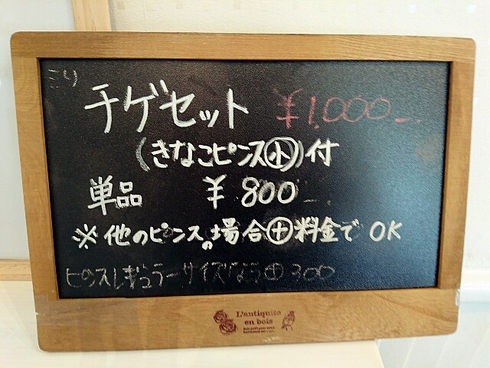 チゲセット ¥1,000
(きなこピンス㊉付
単品 ¥800
※他のピンスの場合⊕料金でOK
ピンスレギュラーサイズなら⊕300
L'antiquite
en bois